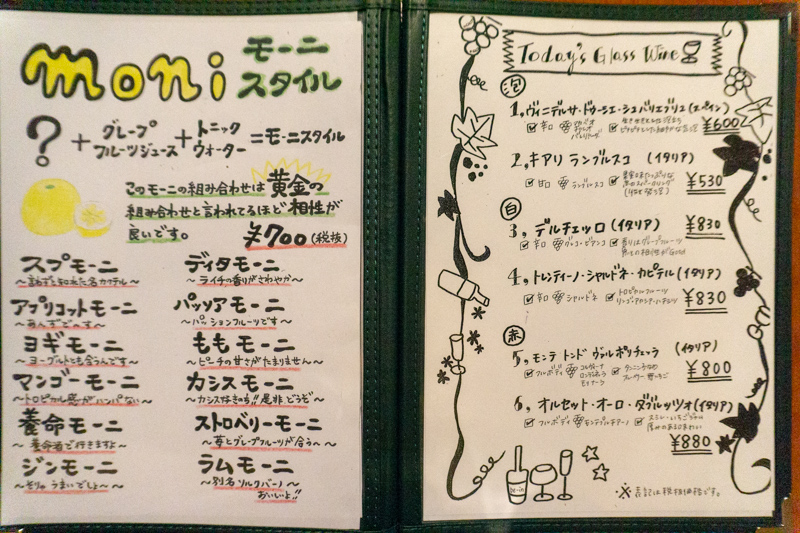 moni
モーニ
スタイル
? + グレープフルーツジュース + トニックウォーター = モーニスタイル
このモーニの組み合わせは黄金の
組み合わせと言われてるほど相性が
良いです。
¥700(税抜)
スプモーニ
〜言わずと知れた名カクテル〜
アプリコットモーニ
〜あんずで〜す〜
ヨギモーニ
〜ヨーグルトとも合うんです〜
マンゴーモーニ
〜トロピカル感がハンパない〜
養命モーニ
〜養命酒で行きますよ〜
ジンモーニ
〜そりゃうまいでしょ〜
ディタモーニ
〜ライチの香りがさわやか〜
パッソアモーニ
〜パッションフルーツです〜
ももモーニ
〜ピーチの甘さがたまりません〜
カシスモーニ
〜カシス好きの方!!是非どうぞ〜
ストロベリーモーニ
〜苺とグレープフルーツが合う〜
ラムモーニ
〜別名ソルクバーノ〜
おいしいよ!!
Today's Glass Wine
泡
1, ヴィニデルサ・ドゥーシェ・シュバリエブリュ(スペイン)
辛口
¥600
2, キアリ ランブルスコ (イタリア)
甘口 ランブルスコ
¥530
白
3, デルチェッロ(イタリア)
¥830
辛口 グレコ・ビアンコ 香りはグレープフルーツ
4, トレンティーノ・シャルドネ・カピテル(イタリア)
辛口 シャルドネ トロピカルフルーツ
¥830
赤
5, モンテ トンド ヴァルポリチェッラ (イタリア)
フルボディ
¥800
6, オルセット・オーロ・ダブルッツォ(イタリア)
フルボディ モンテプルチアーノ
¥880
※表記は税抜価格です。